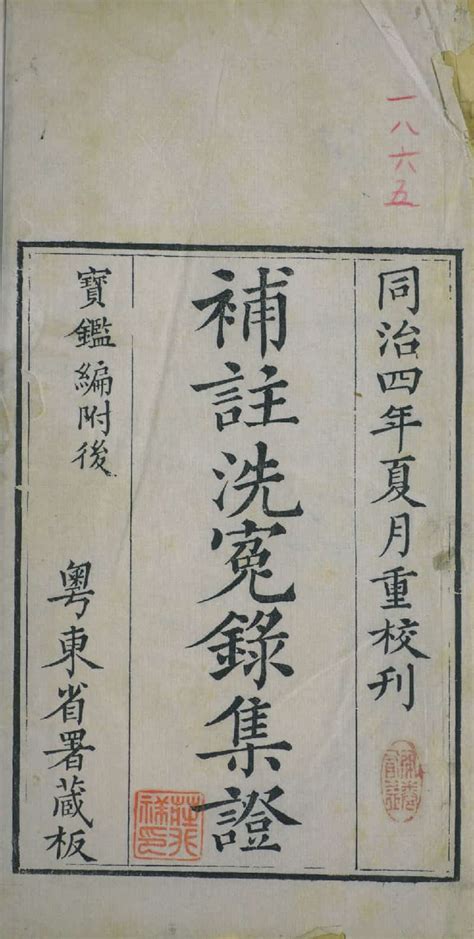 一八六五
同治四年夏月重校刊
補註洗寃錄集證
寶鑑編附後
粵東省署藏板